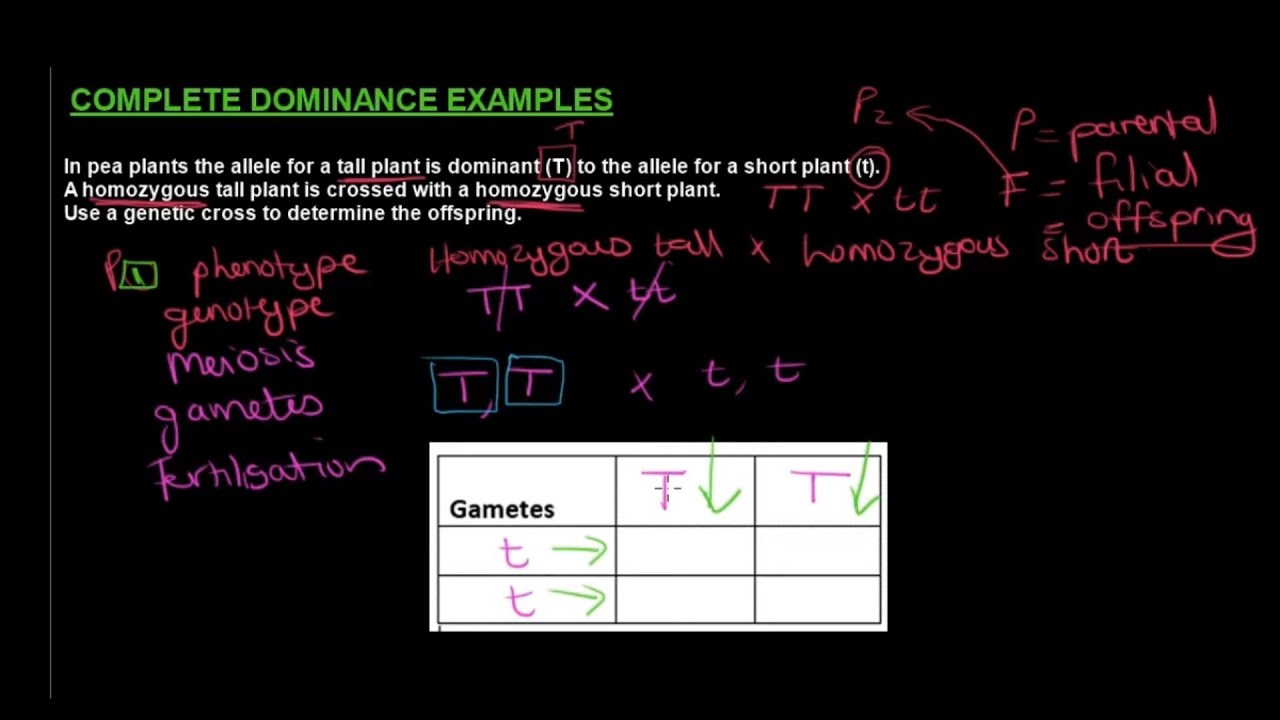 COMPLETE DOMINANCE EXAMPLES
P2
P = parental
T
In pea plants the allele for a tall plant is dominant (T) to the allele for a short plant (t).
F = filial
A homozygous tall plant is crossed with a homozygous short plant.
TT x tt
= offspring
Use a genetic cross to determine the offspring.
P1 phenotype Homozygous tall x homozygous short
genotype TT x tt
meiosis
gametes T, T x t, t
Fertilisation
Gametes T T
t
t